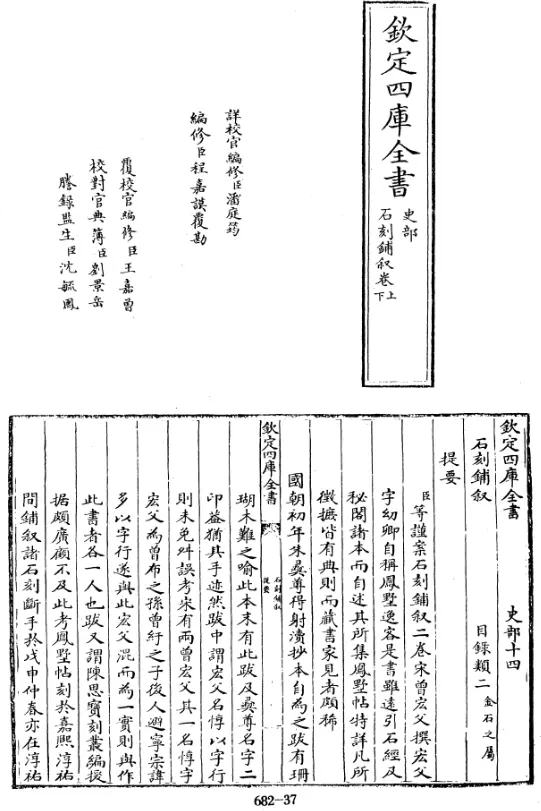 欽定四庫全書
史部
石刻鋪叙卷上下
詳校官編修臣潘庭筠
編修臣程嘉謨覆勘
覆校官編修臣王嘉曾
校對官典簿臣劉景岳
謄錄監生臣沈毓鳳
欽定四庫全書
史部十四
石刻鋪叙
目録類二金石之屬
提要
臣等謹案石刻鋪叙二卷宋曾宏父撰宏父
字幼卿自稱鳳墅逸客是書雖逺引石經及
秘閣諸本而自述其所集鳳墅帖特詳凡所
徴摭皆有典則而藏書家見者頗稀
國朝初年朱彞尊得射瀆抄本自為之跋有珊
欽定四庫全書
石刻鋪叙
提要
瑚木難之喻此本末有此跋及彞尊名字二
印葢猶其手迹然跋中謂宏父名惇以字行
則未免舛誤考宋有兩曾宏父其一名惇字
宏父為曾布之孫曾紆之子後人避寧宗諱
多以字行遂與此宏父混而為一實則與作
此書者各一人也跋又謂陳思寳刻叢編援
据頗廣顧不及此考鳳墅帖刻於嘉熙淳祐
間鋪叙諸石刻斷手於戊申仲春亦在淳祐
682-37